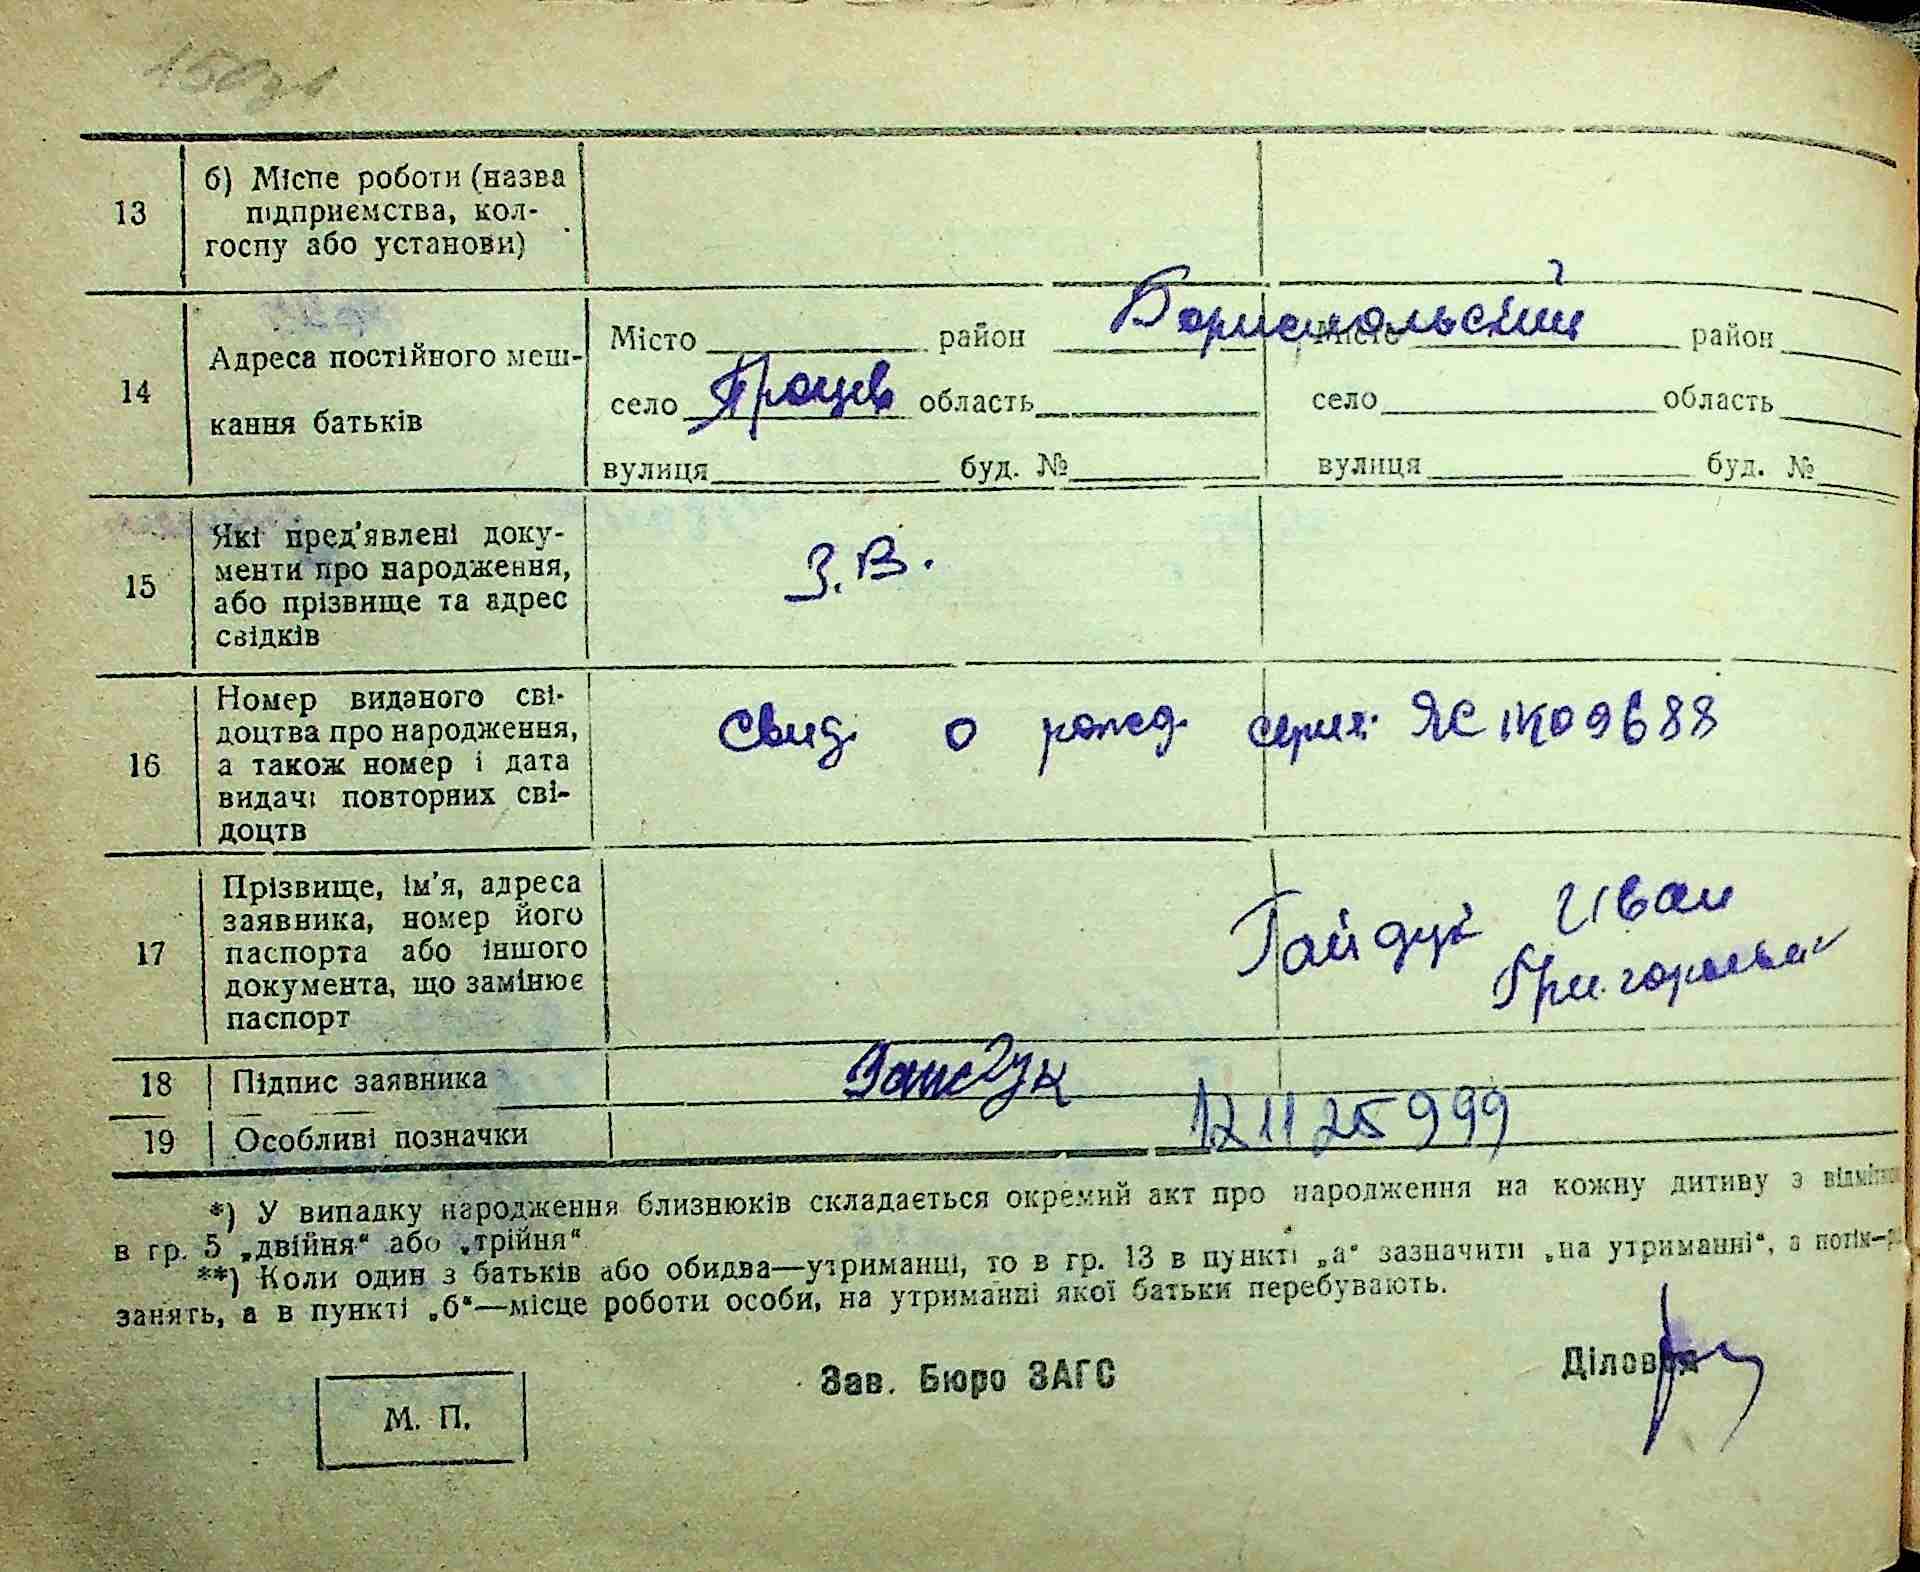 13
б) Місце роботи (назва
підприємства, кол-
госпу або установи)
14
Адреса постійного меш-
кання батьків
Місто район Бориспольский
село Процев область
вулиця буд. №
Місто район
село область
вулиця буд. №
15
Які пред'явлені доку-
менти про народження,
або прізвище та адрес
свідків
З.В.
16
Номер виданого сві-
доцтва про народження,
а також номер і дата
видачі повторних сві-
доцтв
Свид. о рожд. серия: ЯС №09688
17
Прізвище, ім'я, адреса
заявника, номер його
паспорта або іншого
документа, що замінює
паспорт
Гайдук Иван
Григорьевич
18 Підпис заявника
19 Особливі позначки
121125999
*) У випадку народження близнюків складається окремий акт про народження на кожну дитину з
в гр. 5 „двійня“ або „трійня“
**) Коли один з батьків або обидва—утриманці, то в гр. 13 в пункті „а“ зазначити „на утриманні“, а потім
занять, а в пункті „б“—місце роботи особи, на утриманні якої батьки перебувають.
М. П.
Зав. Бюро ЗАГС
Діловод